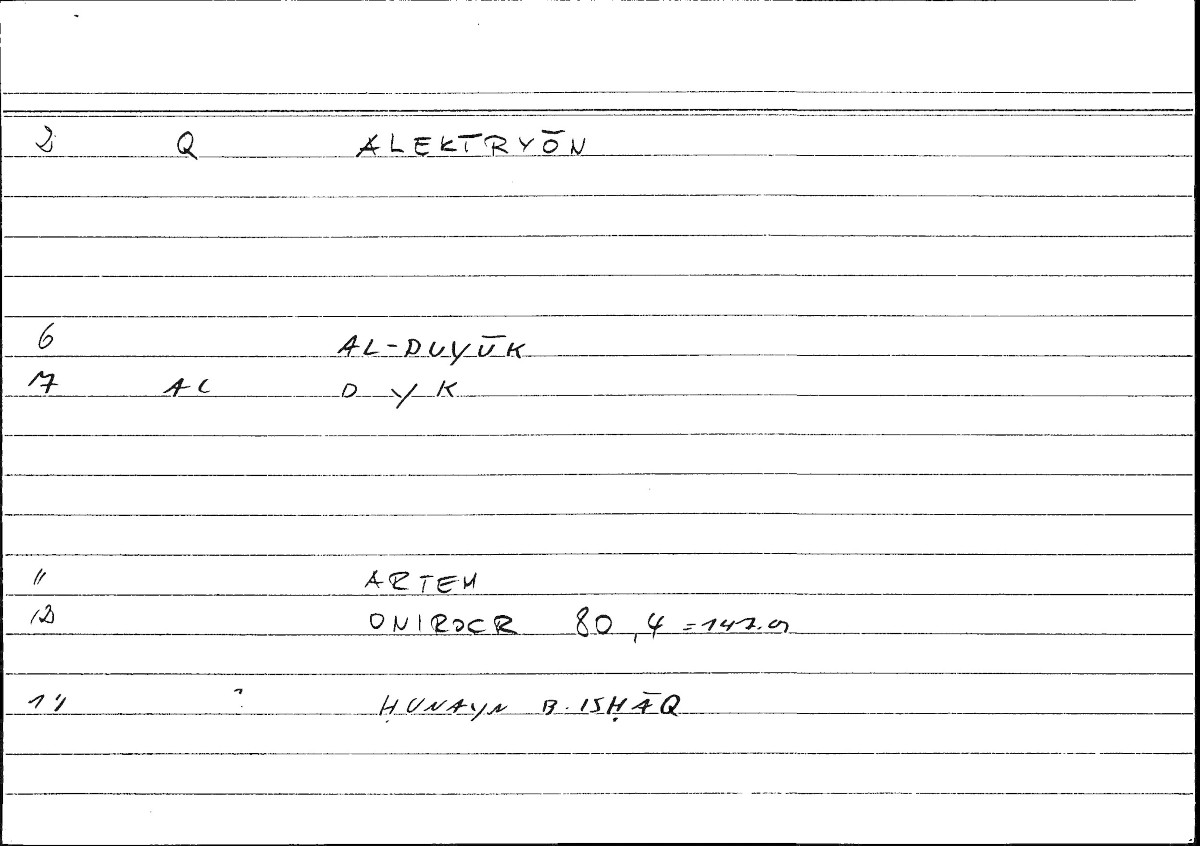 2 Q ALEKTRYŌN
6 AL-DUYŪK
7 AL D Y K
11 ARTEM
12 ONIROCR 80,4 =147.9
14 ? ḤUNAYN B. ISḤĀQ